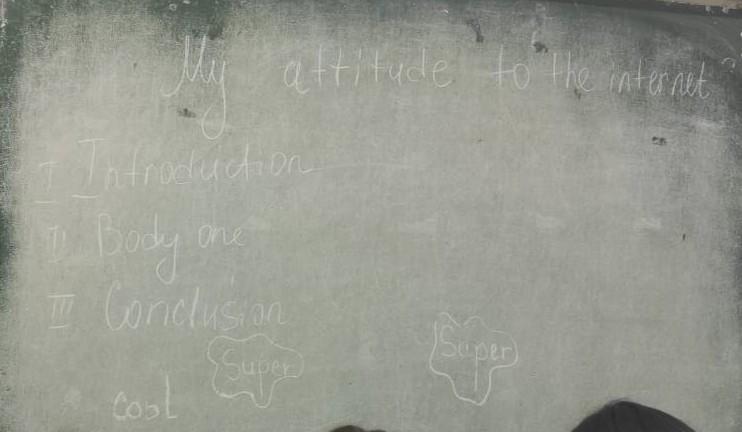 My attitude to the internet
I Introduction
II Body one
III Conclusion
Super Super
cool